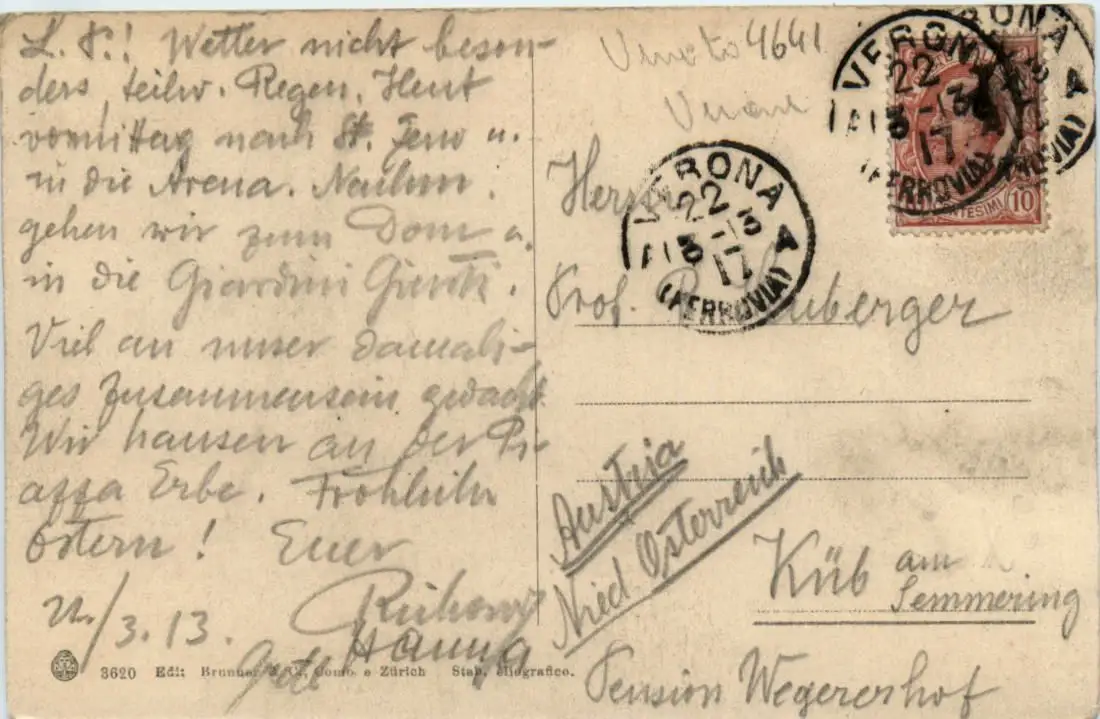 L. F.! Wetter nicht beson-
ders, teilw. Regen. Heut
vormittag nach St. Zeno u.
in die Arena. Nachm.
gehen wir zum Dom u.
in die Giardini Giusti.
Viel an unser damali-
ges Zusammensein gedacht.
Wir hausen an der Pi-
azza Erbe. Fröhliche
Ostern! Euer
/3. 13.
Hanna
3620 Edit: Brunner & Co., Como e Zürich Stab. eliografico.
4641
VERONA
22
3-13
17
(FERROVIA)
VERONA
22
3-13
17
(FERROVIA)
10
Prof.
Austria
Nied Österreich
Küb am
Semmering
Pension Wegererhof